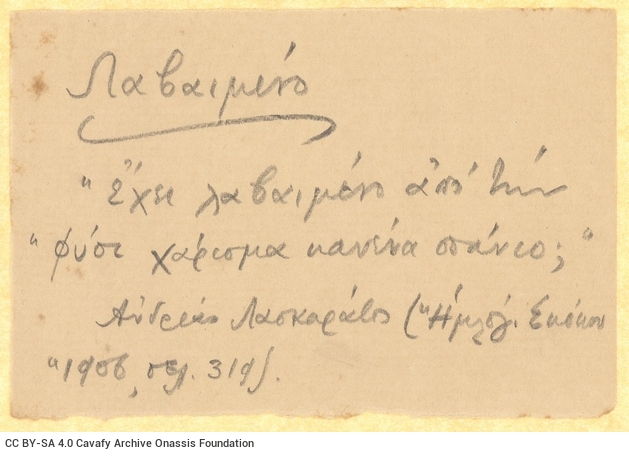 Λαβαιμένο
"Έχει λαβαιμένο από την
"φύσι χάρισμα κανένα σπάνιο;"
Ανδρέας Λασκαράτος ("Ημερολ. Σκόκου
"1906, σελ. 319).
CC BY-SA 4.0 Cavafy Archive Onassis Foundation